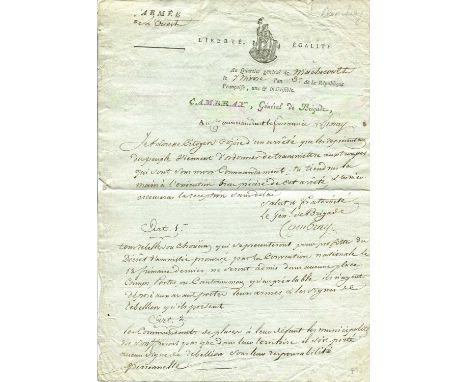 ARMÉE
de l'Ouest
LIBERTÉ, ÉGALITÉ
Au Quartier général de
le 7 nivôse l'an 3e. de la République
Française, une & indivisible.
CAMBRAY, Général de Brigade,
Au Commandant
Je t'adresse Citoyen copie d'un arrêté que les représentans
du peuple viennent d'ordonner de transmettre aux troupes
qui sont sous mon Commandement, tu tiendras la
main à l'exécution pleine de cet arrêté, et tu m'en
accuseras la réception sans délai
Salut & fraternité
Le Genal de Brigade
Cambray
Art. 1er
tous rebelles ou chouans qui se présenteront pour profiter du
Décret d'amnistie prononcé par la Convention nationale le
12 frimaire dernier ne seront admis dans aucune place
Camps Postes ou Cantonnemens, qu'au préalable ils n'ayent
déposé aux avant postes leurs armes, et les signes de
rébellion qu'ils portent
Art. 2
les Commandants de places à leur défaut les municipalités
ne souffriront pas que dans leur territoire il soit porté
aucun signe de rébellion sous leur responsabilité
personnelle